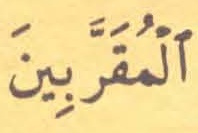 ٱلْمُقَرَّبِينَ